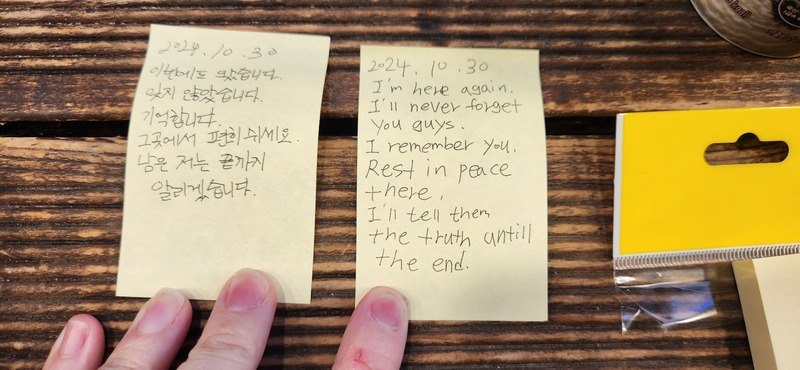 2024.10.30
이번에도 왔습니다.
잊지 않았습니다.
기억합니다.
그곳에서 편히 쉬세요.
남은 저는 끝까지
알리겠습니다.
2024.10.30
I'm here again.
I'll never forget
you guys.
I remember you.
Rest in peace
there.
I'll tell them
the truth untill
the end.